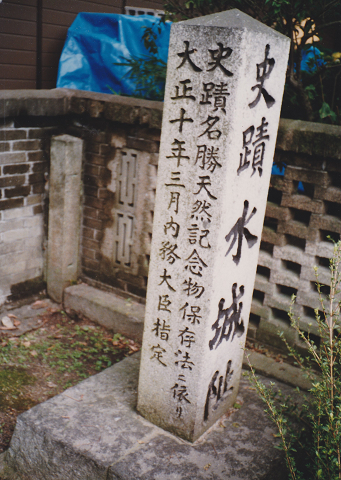 史蹟水城阯
史蹟名勝天然記念物保存法ニ依リ
大正十年三月内務大臣指定